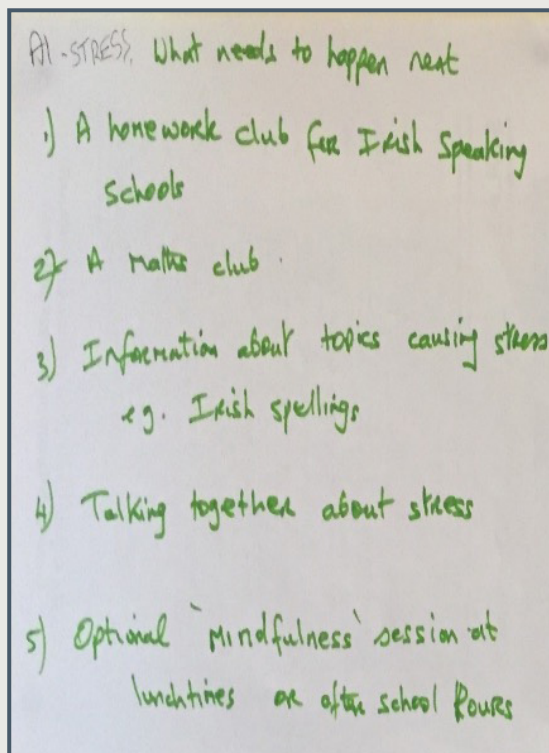 A1 - STRESS. What needs to happen next
1) A homework club for Irish Speaking
Schools
2) A Maths club.
3) Information about topics causing stress
eg. Irish spellings
4) Talking together about stress
5) Optional 'Mindfulness' session at
lunchtimes or after school hours